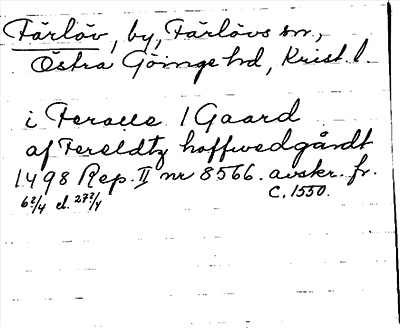 Färlöv, by, Färlövs sn,
Östra Göinge hd, Krist. l.
i Feralle 1 Gaard
af Fereldtz hoffwedgårdt
1498 Rep. II nr 8566. avskr. fr.
6 2/4 el. 27 2/4 c. 1550.